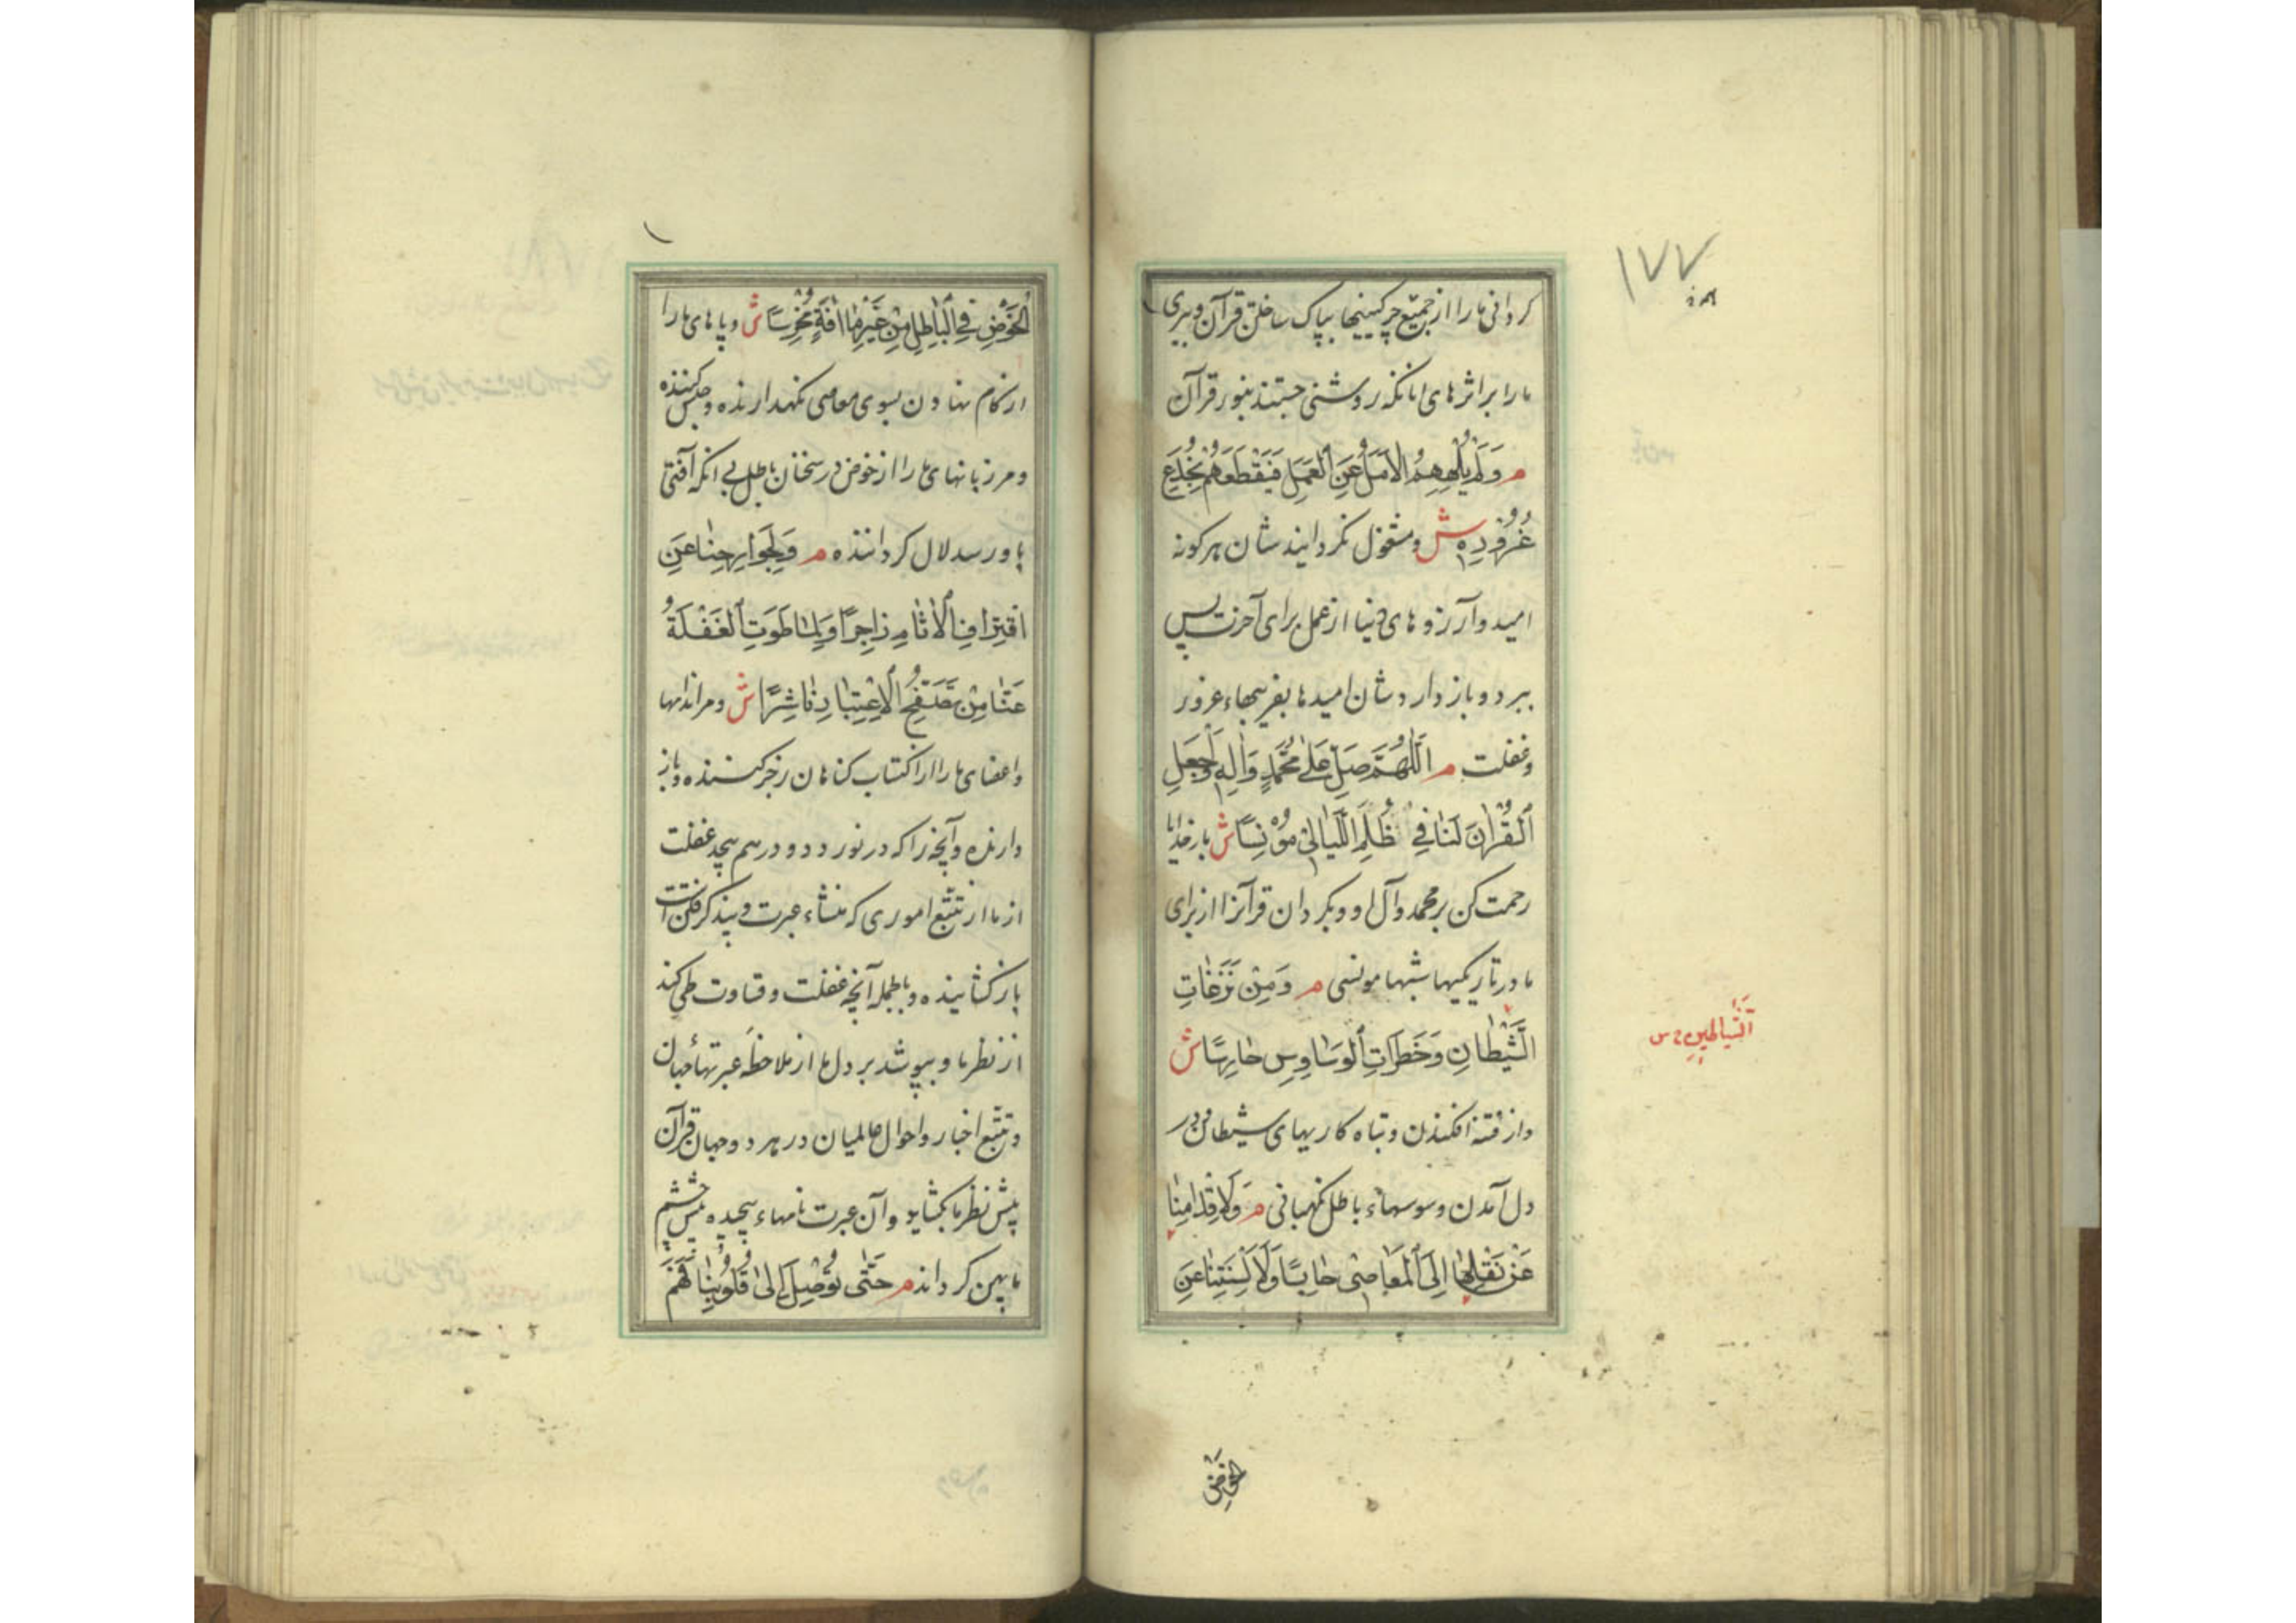 ۱۷۷
گردانی ما را از جمیع چرکینیها بپاک ساختن قرآن و ببری
ما را بر اثرهای آنانکه روشنی جستند بنور قرآن
م وَلَمْ يُلْهِهِمُ الْأَمَلُ عَنِ الْعَمَلِ فَيَقْطَعَهُمْ بِخُدَعِ
غُرُورِهِ ش و مشغول نگردانیدشان هرگونه
امید و آرزوهای دنیا از عمل برای آخرت پس
ببرد و باز داردشان امیدها بفریبهاء غرور
و غفلت م اَللّٰهُمَّ صَلِّ عَلٰى مُحَمَّدٍ وَاٰلِهٖ وَاجْعَلِ
الْقُرْاٰنَ لَنَا فِي ظُلَمِ اللَّيَالِي مُوْنِسًا ش بار خدایا
رحمت کن بر محمد و آل او و بگردان قرآنرا از برای
ما در تاریکیها شبها مونسی م وَمِنْ نَزَغَاتِ
الشَّيْطَانِ وَخَطَرَاتِ الْوَسَاوِسِ حَارِسًا ش
الشَّيَاطِينِ
و از فتنه افکندن و تباه کاریهای شیطان و در
دل آمدن وسوسهاء باطل نگهبانی م وَلِأَقْدَامِنَا
عَنْ نَقْلِهَا اِلَى الْمَعَاصِى حَابِسًا وَلِأَلْسِنَتِنَا عَنِ
الخوض
الْخَوْضِ فِي الْبَاطِلِ مِنْ غَيْرِ مَا اٰفَةٍ مُخْرِسًا ش و پاهای ما را
از گام نهادن بسوی معاصی نگهدارنده و حبس کننده
و مر زبانهای ما را از خوض در سخنان باطل بی انکه آفتی
باو رسد لال گرداننده م وَلِجَوَارِحِنَا عَنِ
اقْتِرَافِ الْاٰثَامِ زَاجِرًا وَلِمَا طَوَتِ الْغَفْلَةُ
عَنَّا مِنْ تَصَفُّحِ الْاِعْتِبَارِ نَاشِرًا ش و مر اندامها
و اعضای ما را از اکتساب گناهان زجر کننده و باز
دارنده و آنچه را که در نوردد و درهم پیچد غفلت
از ما از تتبع اموری که منشاء عبرت و پند گرفتن است
باز گشاینده و بالجمله آنچه غفلت و قساوت طی کند
از نظر ما و بپوشد بر دل ما از ملاحظه عبرتهاء جهان
و تتبع اخبار و احوال عالمیان در هر دو جهان قرآن
پیش نظر ما بگشاید و آن عبرت نامهاء پیچیده پیش چشم
ما پهن گرداند م حَتّٰى تُوصِلَ اِلٰى قُلُوبِنَا فَهْمَ